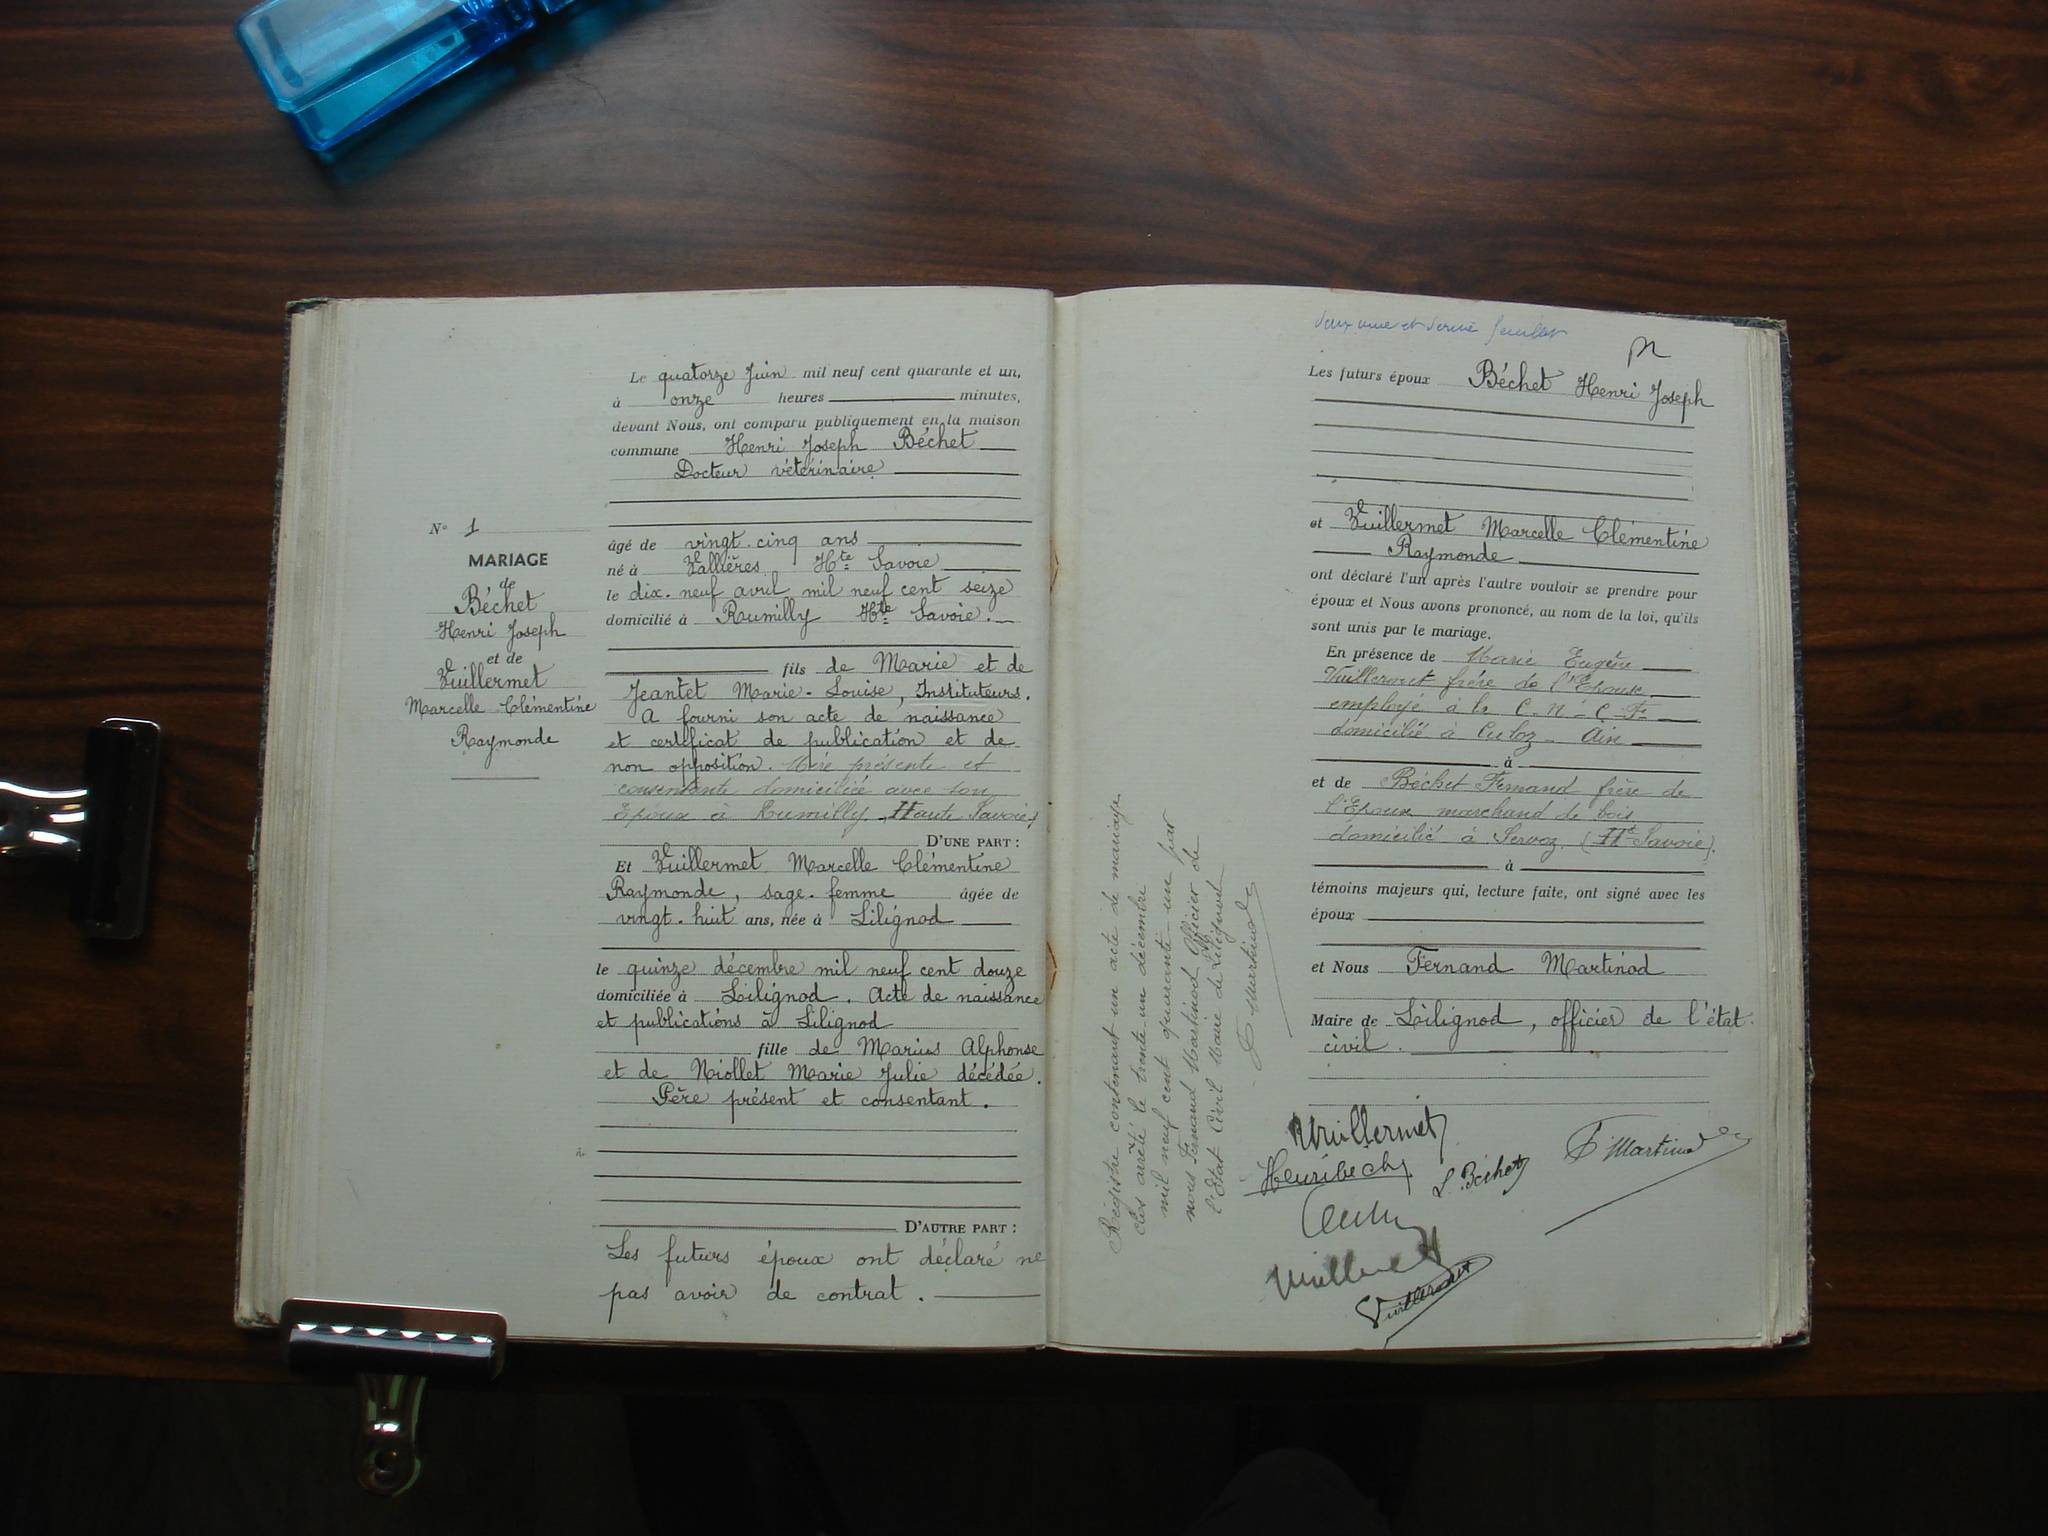 N° 1
MARIAGE
de
Béchet
Henri Joseph
et de
Vuillermet
Marcelle Clémentine
Raymonde
Le quatorze Juin mil neuf cent quarante et un,
à onze heures minutes,
devant Nous, ont comparu publiquement en la maison
commune Henri Joseph Béchet
Docteur vétérinaire
âgé de vingt-cinq ans
né à Vallières Hte Savoie
le dix-neuf avril mil neuf cent seize
domicilié à Rumilly Hte Savoie.
fils de Marie et de
Jeantet Marie-Louise, Instituteurs.
A fourni son acte de naissance
et certificat de publication et de
non opposition. Mère présente et
consentante domiciliée avec son
Epoux à Rumilly Haute Savoie
D'UNE PART :
Et Vuillermet Marcelle Clémentine
Raymonde, sage-femme âgée de
vingt-huit ans, née à Lilignod
le quinze décembre mil neuf cent douze
domiciliée à Lilignod. Acte de naissance
et publications à Lilignod
fille de Marius Alphonse
et de Niollet Marie Julie décédée.
Père présent et consentant.
D'AUTRE PART :
Les futurs époux ont déclaré ne
pas avoir de contrat.
Registre contenant un acte de mariage
clos arrêté le trente-un décembre
mil neuf cent quarante-un par
nous Fernand Martinod Officier de
l'Etat Civil Maire de Lilignod
F Martinod
Les futurs époux Béchet Henri Joseph
et Vuillermet Marcelle Clémentine
Raymonde
ont déclaré l'un après l'autre vouloir se prendre pour
époux et Nous avons prononcé, au nom de la loi, qu'ils
sont unis par le mariage.
En présence de Marie Eugène
Vuillermet frère de l'Epouse
employé à la C-N-C-F-
domicilié à Culoz - Ain
à
et de Béchet Fernand frère de
l'Epoux marchand de bois
domicilié à Servoz (Hte Savoie).
à
témoins majeurs qui, lecture faite, ont signé avec les
époux
et Nous Fernand Martinod
Maire de Lilignod, officier de l'état
civil.
Vuillermet
Henri Bechet
L. Béchet
F Martinod
Vuillermet
Vuillermet